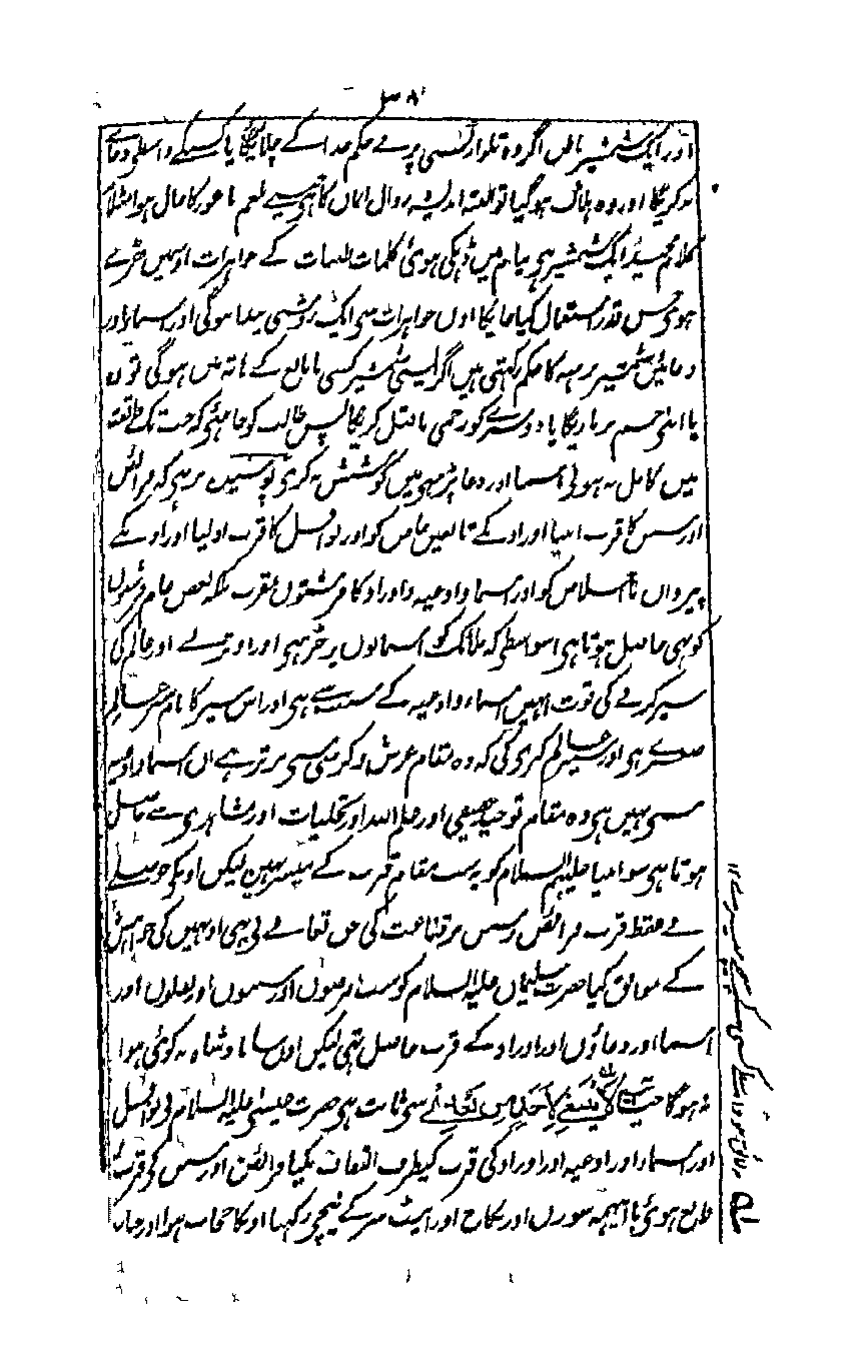 ٣٨
اور ایک شمشیر ہاں اگر وہ تلوار کسی پر بے حکم خدا کے چلائیگا یا کسیکے واسطی دعاے
بد کریگا اور وہ ہلاک ہو گیا تو البتہ اندیشہ زوال ایمان کا ہی جیسے بلعم باعور کا حال ہوا مثلاً
کلام مجید ایک شمشیر ہی نیام میں ڈہکی ہوئی کلمات طیبات کے جواہرات اوسمیں جڑے
ہوی جس قدر استعمال کیا جائیگا اون جواہرات سی ایک روشنی پیدا ہوگی اور اسما اور
دعائیں شمشیر برہنہ کا حکم رکھتی ہیں اگر ایسی شمشیر کسی نابالغ کے ہاتہ میں ہو گی تو وہ
یا اپنی جسم پر ماریگا یا دوسرے کو زخمی یا قتل کریگا پس طالب کو چاہئی کہ جب تک طریقت
میں کامل نہ ہو لی اسما اور دعا پڑہنی میں کوشش نہ کری پوشیدہ نہ رہی کہ فرائض
اور سنن کا قرب انبیا اور اونکے تابعین خاص کو اور نوافل کا قرب اولیا اور اونکے
پیرواں با اخلاص کو اور اسما و ادعیہ و اوراد کا فرشتوں تقرب بلکہ بعض عام مومنوں
کو بہی حاصل ہوتا ہی اسواسطی کہ ملائک کو آسمانوں پر چڑہنی اور اوترنے اور عالم کی
سیر کرنے کی قوت انہیں اسماء و ادعیہ کے سبب سے ہی اور اس سیر کا نام سیر عالم
صغرے ہی اور سیر عالم کبری کی کہ وہ مقام عرش و کرسی سی برتر ہے ان اسما و ادعیہ
سی نہیں ہی وہ مقام توحید حقیقی اور علم اللہ اور تجلیات اور مشاہدی سے حاصل
ہوتا ہی سو انبیا علیہم السلام کو یہ سب مقام قرب کے میسر ہیں لیکن اونکی حوصلے
نے فقط قرب فرائض و سنن پر قناعت کی حق تعالے نی بہی اونہیں کی خواہش
کے موافق کیا حضرت سلیمان علیہ السلام کو سب فرضوں اور سنتوں اور نفلوں اور
اسما اور دعاؤں اور اوراد کے قرب حاصل تہی لیکن اون سا بادشاہ نہ کوئی ہوا
نہ ہوگا جیسا لَا يَنۢبَغِي لِأَحَدٍ مِّن بَعْدِي سی ثابت ہی حضرت عیسیٰ علیہ السلام نی نوافل
اور اسما اور ادعیہ اور اوراد کی قرب کیطرف التفات نکیا فرائض اور سنن کی قرب
قانع ہوئی با اینہمہ سوزن اور نکاح اور اینٹ سر کے نیچی رکہنا اونکا حجاب ہوا اور چار